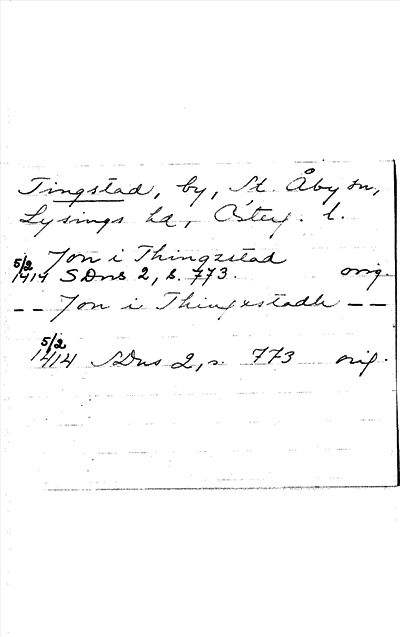 Tingstad, by, St. Åby sn,
Lysings hd, Österg. l.
Jon i Thingzstad
5/2 1414 SDns 2, s. 773. orig.
-- Jon i Thingxstadh --
5/2 1414 SDns 2, s. 773 orig.